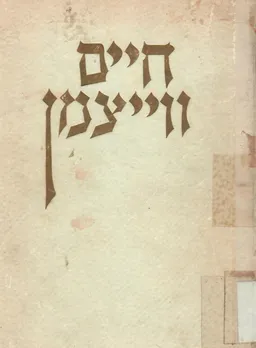 חיים
ווייצמן